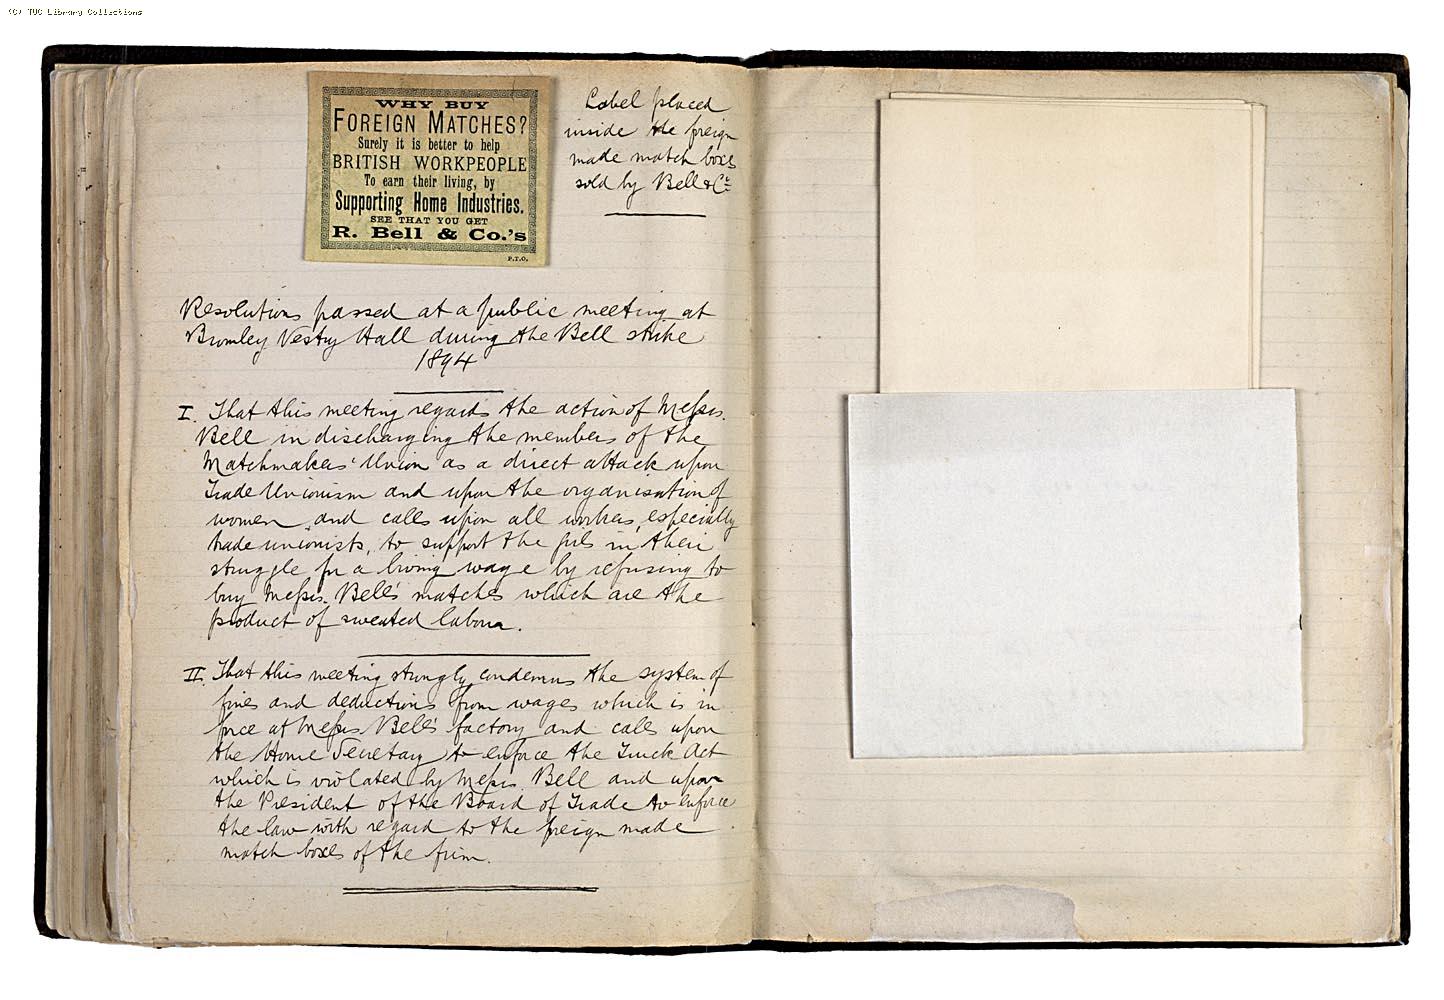 (C) TUC Library Collections
WHY BUY
FOREIGN MATCHES?
Surely it is better to help
BRITISH WORKPEOPLE
To earn their living, by
Supporting Home Industries.
SEE THAT YOU GET
R. Bell & Co.'s
P.T.O.
Label placed
inside the foreign
made match boxes
sold by Bell & Co
Resolutions passed at a public meeting at
Bromley Vestry Hall during the Bell strike
1894
I. That this meeting regards the action of Messrs.
Bell in discharging the members of the
Matchmakers' Union as a direct attack upon
Trade Unionism and upon the organisation of
women and calls upon all workers, especially
trade unionists, to support the girls in their
struggle for a living wage by refusing to
buy Messrs. Bell's matches which are the
product of sweated labour.
II. That this meeting strongly condemns the system of
fines and deductions from wages which is in
force at Messrs Bell's factory and calls upon
the Home Secretary to enforce the Truck Act
which is violated by Messrs. Bell and upon
the President of the Board of Trade to enforce
the law with regard to the foreign made
match boxes of the firm.